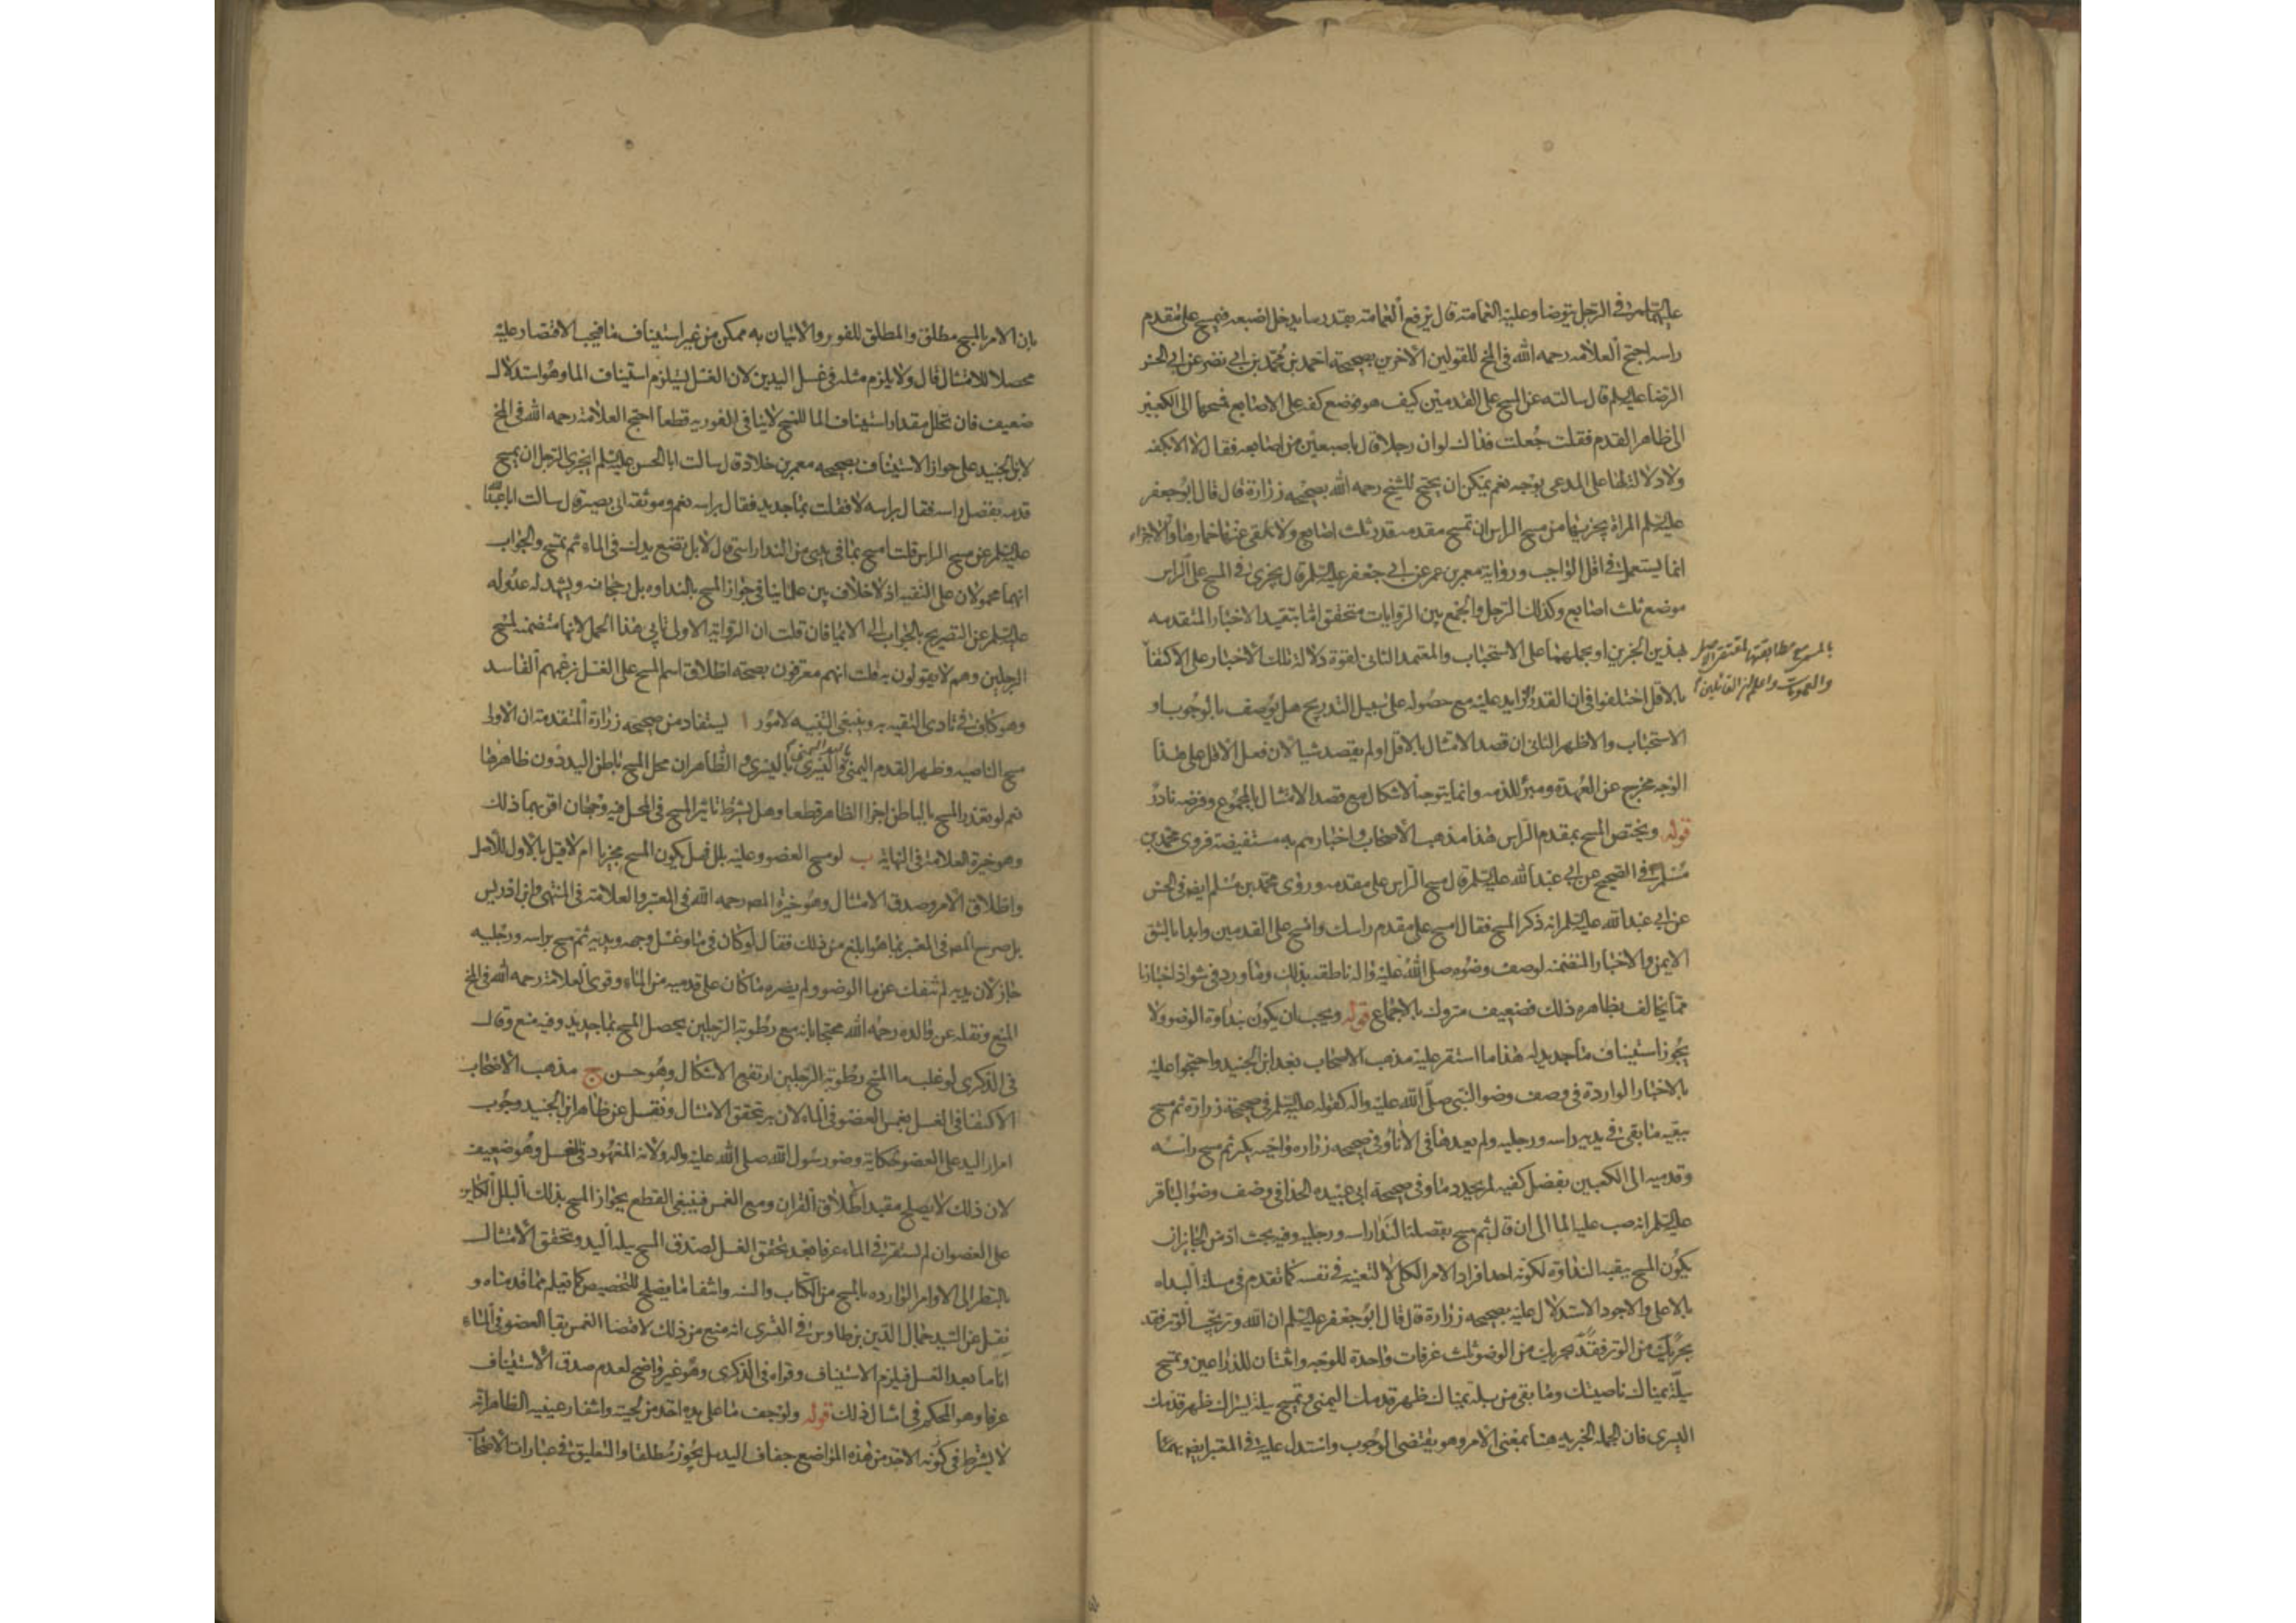 عليهما السلم في الرجل يتوضأ وعليه العمامة قال يرفع العمامة بقدر ما يدخل اصبعه فيمسح على مقدم
راسه احتج العلامه رحمه الله في المخ للقولين الاخرين بصحيحة احمد بن محمد بن ابي نصر عن ابي الحسن
الرضا عليه السلم قال سالته عن المسح على القدمين كيف هو فوضع كفه على الاصابع فمسحها الى الكعبين
الى ظاهر القدم فقلت جعلت فداك لو ان رجلا قال باصبعين من اصابعه فقال لا الا بكفه
ولا دلالة لها على المدعى بوجه نعم يمكن ان يحتج للشيخ رحمه الله بصحيحه زرارة قال قال ابو جعفر
عليه السلم المراة يجزيها من مسح الراس ان تمسح مقدمه قدر ثلث اصابع ولا تلقى عنها خمارها والاجزاء
انما يستعمل في اقل الواجب ورواية معمر بن عمر عن ابي جعفر عليه السلم قال يجزى في المسح على الراس
موضع ثلث اصابع وكذلك الرجل والجمع بين الروايات متحقق اما بتقييد الاخبار المتقدمه
بهذين الخبرين او بحملهما على الاستحباب والمعتمد الثاني لقوة دلالة تلك الاخبار على الاكتفا
بالمسمى مطابقتها لمقتضى الاصل
والعمومات واعلم ان القائلين
بالاقل اختلفوا في ان القدر الزايد عليه مع حصوله على سبيل التدريج هل يوصف بالوجوب او
الاستحباب والاظهر الثاني ان قصد الامتثال بالاقل او لم يقصد شيا لان فعل الاقل على هذا
الوجه مخرج عن العهدة ومبرئ للذمه وانما يتوجه الاشكال مع قصد الامتثال بالمجموع وفرضه نادر
قوله ويختص المسح بمقدم الراس هذا مذهب الاصحاب واخبارهم به مستفيضة فروى محمد بن
مسلم في الصحيح عن ابي عبد الله عليه السلم قال مسح الراس على مقدمه وروى محمد بن مسلم ايض في الحسن
عن ابي عبد الله عليه السلم انه ذكر المسح فقال امسح على مقدم راسك وامسح على القدمين وابدا بالشق
الايمن والاخبار المتضمنه لوصف وضوه صلى الله عليه واله ناطقه بذلك وما ورد في شواذ اخبارنا
مما يخالف بظاهره ذلك فضعيف متروك بالاجماع قوله ويجب ان يكون بنداوة الوضو ولا
يجوز استيناف ما جديد له هذا ما استقر عليه مذهب الاصحاب بعد ابن الجنيد واحتجوا عليه
بالاخبار الواردة في وصف وضو النبي صلى الله عليه واله كقوله عليه السلم في صحيحة زرارة ثم مسح
ببقيه ما بقى في يديه راسه ورجليه ولم يعدهما في الاناء وفي صحيحه زراره واخيه بكير ثم مسح راسه
وقدميه الى الكعبين بفضل كفيه لم يجدد ما وفي صحيحة ابي عبيده الحذا في وصف وضو الباقر
عليه السلم انه صب عليه الما الى ان قال ثم مسح بفضلة الندا راسه ورجليه وفيه بحث اذ من الجايز ان
يكون المسح ببقيه النداوة لكونه احد افراد الامر الكلى لا لتعينه في نفسه كما تقدم في مسلة البداه
بالاعلى والاجود الاستدلال عليه بصحيحه زرارة قال قال ابو جعفر عليه السلم ان الله وتر يحب الوتر فقد
يجزيك من الوضو ثلث غرفات واحدة للوجه واثنتان للذراعين وتمسح
ببلة يمناك ناصيتك وما بقى من بلة يمناك ظهر قدمك اليمنى وتمسح ببلة يسراك ظهر قدمك
اليسرى فان الجملة الخبريه هنا بمعنى الامر وهو يقتضى الوجوب واستدل عليه في المعتبر ايض
بان الامر بالمسح مطلق والمطلق للفور والاتيان به ممكن من غير استيناف ما فيجب الاقتصار عليه
محصلا للامتثال قال ولا يلزم مثله في غسل اليدين لان الغسل يستلزم استيناف الما وهو استدلال
ضعيف فان تخلل مقدار استيناف الما للمسح لا ينافي الفوريه قطعا احتج العلامة رحمه الله في المخ
لابن الجنيد على جواز الاستيناف بصحيحه معمر بن خلاد قال سالت ابا الحسن عليه السلم ايجزى الرجل ان يمسح
قدميه بفضل راسه فقال براسه لا فقلت بما جديد فقال براسه نعم وموثقه ابي بصير قال سالت ابا عبد الله
عليه السلم عن مسح الراس قلت امسح بما في يدى من الندا راسى قال لا بل تضع يدك في الماء ثم تمسح والجواب
انهما محمولان على التقيه اذ لا خلاف بين علمائنا في جواز المسح بالنداوه بل رجحانه ويشهد له عدوله
عليه السلم عن التصريح بالجواب الى الايما فان قلت ان الرواية الاولى تابى هذا الحمل لانها متضمنه لمسح
الرجلين وهم لا يقولون به قلت انهم معترفون بصحة اطلاق اسم المسح على الغسل بزعمهم الفاسد
وهو كاف في تادى التقيه به وينبغي التنبيه لامور ا يستفاد من صحيحه زرارة المتقدمة ان الاولى
مسح الناصيه وظهر القدم اليمنى باليد اليمنى واليسرى باليسرى الظاهر ان محل المسح باطن اليد دون ظاهرها
نعم لو تعذر المسح بالباطن اجزا الظاهر قطعا وهل يشترط تاثير المسح في المحل فيه وجهان اقربهما ذلك
وهو خيرة العلامة في النهاية ب لو مسح العضو وعليه بلل فهل يكون المسح مجزيا ام لا قيل بالاول للاصل
واطلاق الامر وصدق الامتثال وهو خيرة المصه رحمه الله في المعتبر والعلامة في المنتهى وابن ادريس
بل صرح المصه في المعتبر بما هو ابلغ من ذلك فقال لو كان في ما وغسل وجهه ويديه ثم مسح براسه ورجليه
جاز لان يديه لم تنفك عن ما الوضو ولم يضره ما كان على قدميه من الماء وقوى العلامة رحمه الله في المخ
المنع ونقله عن والده رحمه الله محتجا بانه مع رطوبة الرجلين يحصل المسح بما جديد وفيه منع وقال
في الذكرى لو غلب ما المسح رطوبة الرجلين ارتفع الاشكال وهو حسن ج مذهب الاصحاب
الاكتفا في الغسل بغمس العضو في الماء لان به يتحقق الامتثال ونقل عن ظاهر ابن الجنيد وجوب
امرار اليد على العضو لحكاية وضو رسول الله صلى الله عليه واله ولانه المعهود في الغسل وهو ضعيف
لان ذلك لا يصلح مقيدا لاطلاق القران ومع الغمس فينبغي القطع بجواز المسح بذلك البلل الكاين
على العضو وان لم يستقر في الماء عرفا بعد تحقق الغسل لصدق المسح ببلة اليد وتحقق الامتثال
بالنظر الى الاوامر الوارده بالمسح من الكتاب والسنه وانتفا ما يصلح للتخصيص كما تعلم مما قدمناه و
نقل عن السيد جمال الدين بن طاوس في البشرى انه منع من ذلك لاقتضا الغمس بقا العضو في الماء
انا ما بعد الغسل فيلزم الاستيناف وقواه في الذكرى وهو غير واضح لعدم صدق الاستيناف
عرفا وهو المحكم في امثال ذلك قوله ولو جف ما على يده اخذ من لحيته واشفار عينيه الظاهر انه
لا يشترط في كونه الاخذ من هذه المواضع جفاف اليد بل يجوز مطلقا والتعليق في عبارات الاصحاب